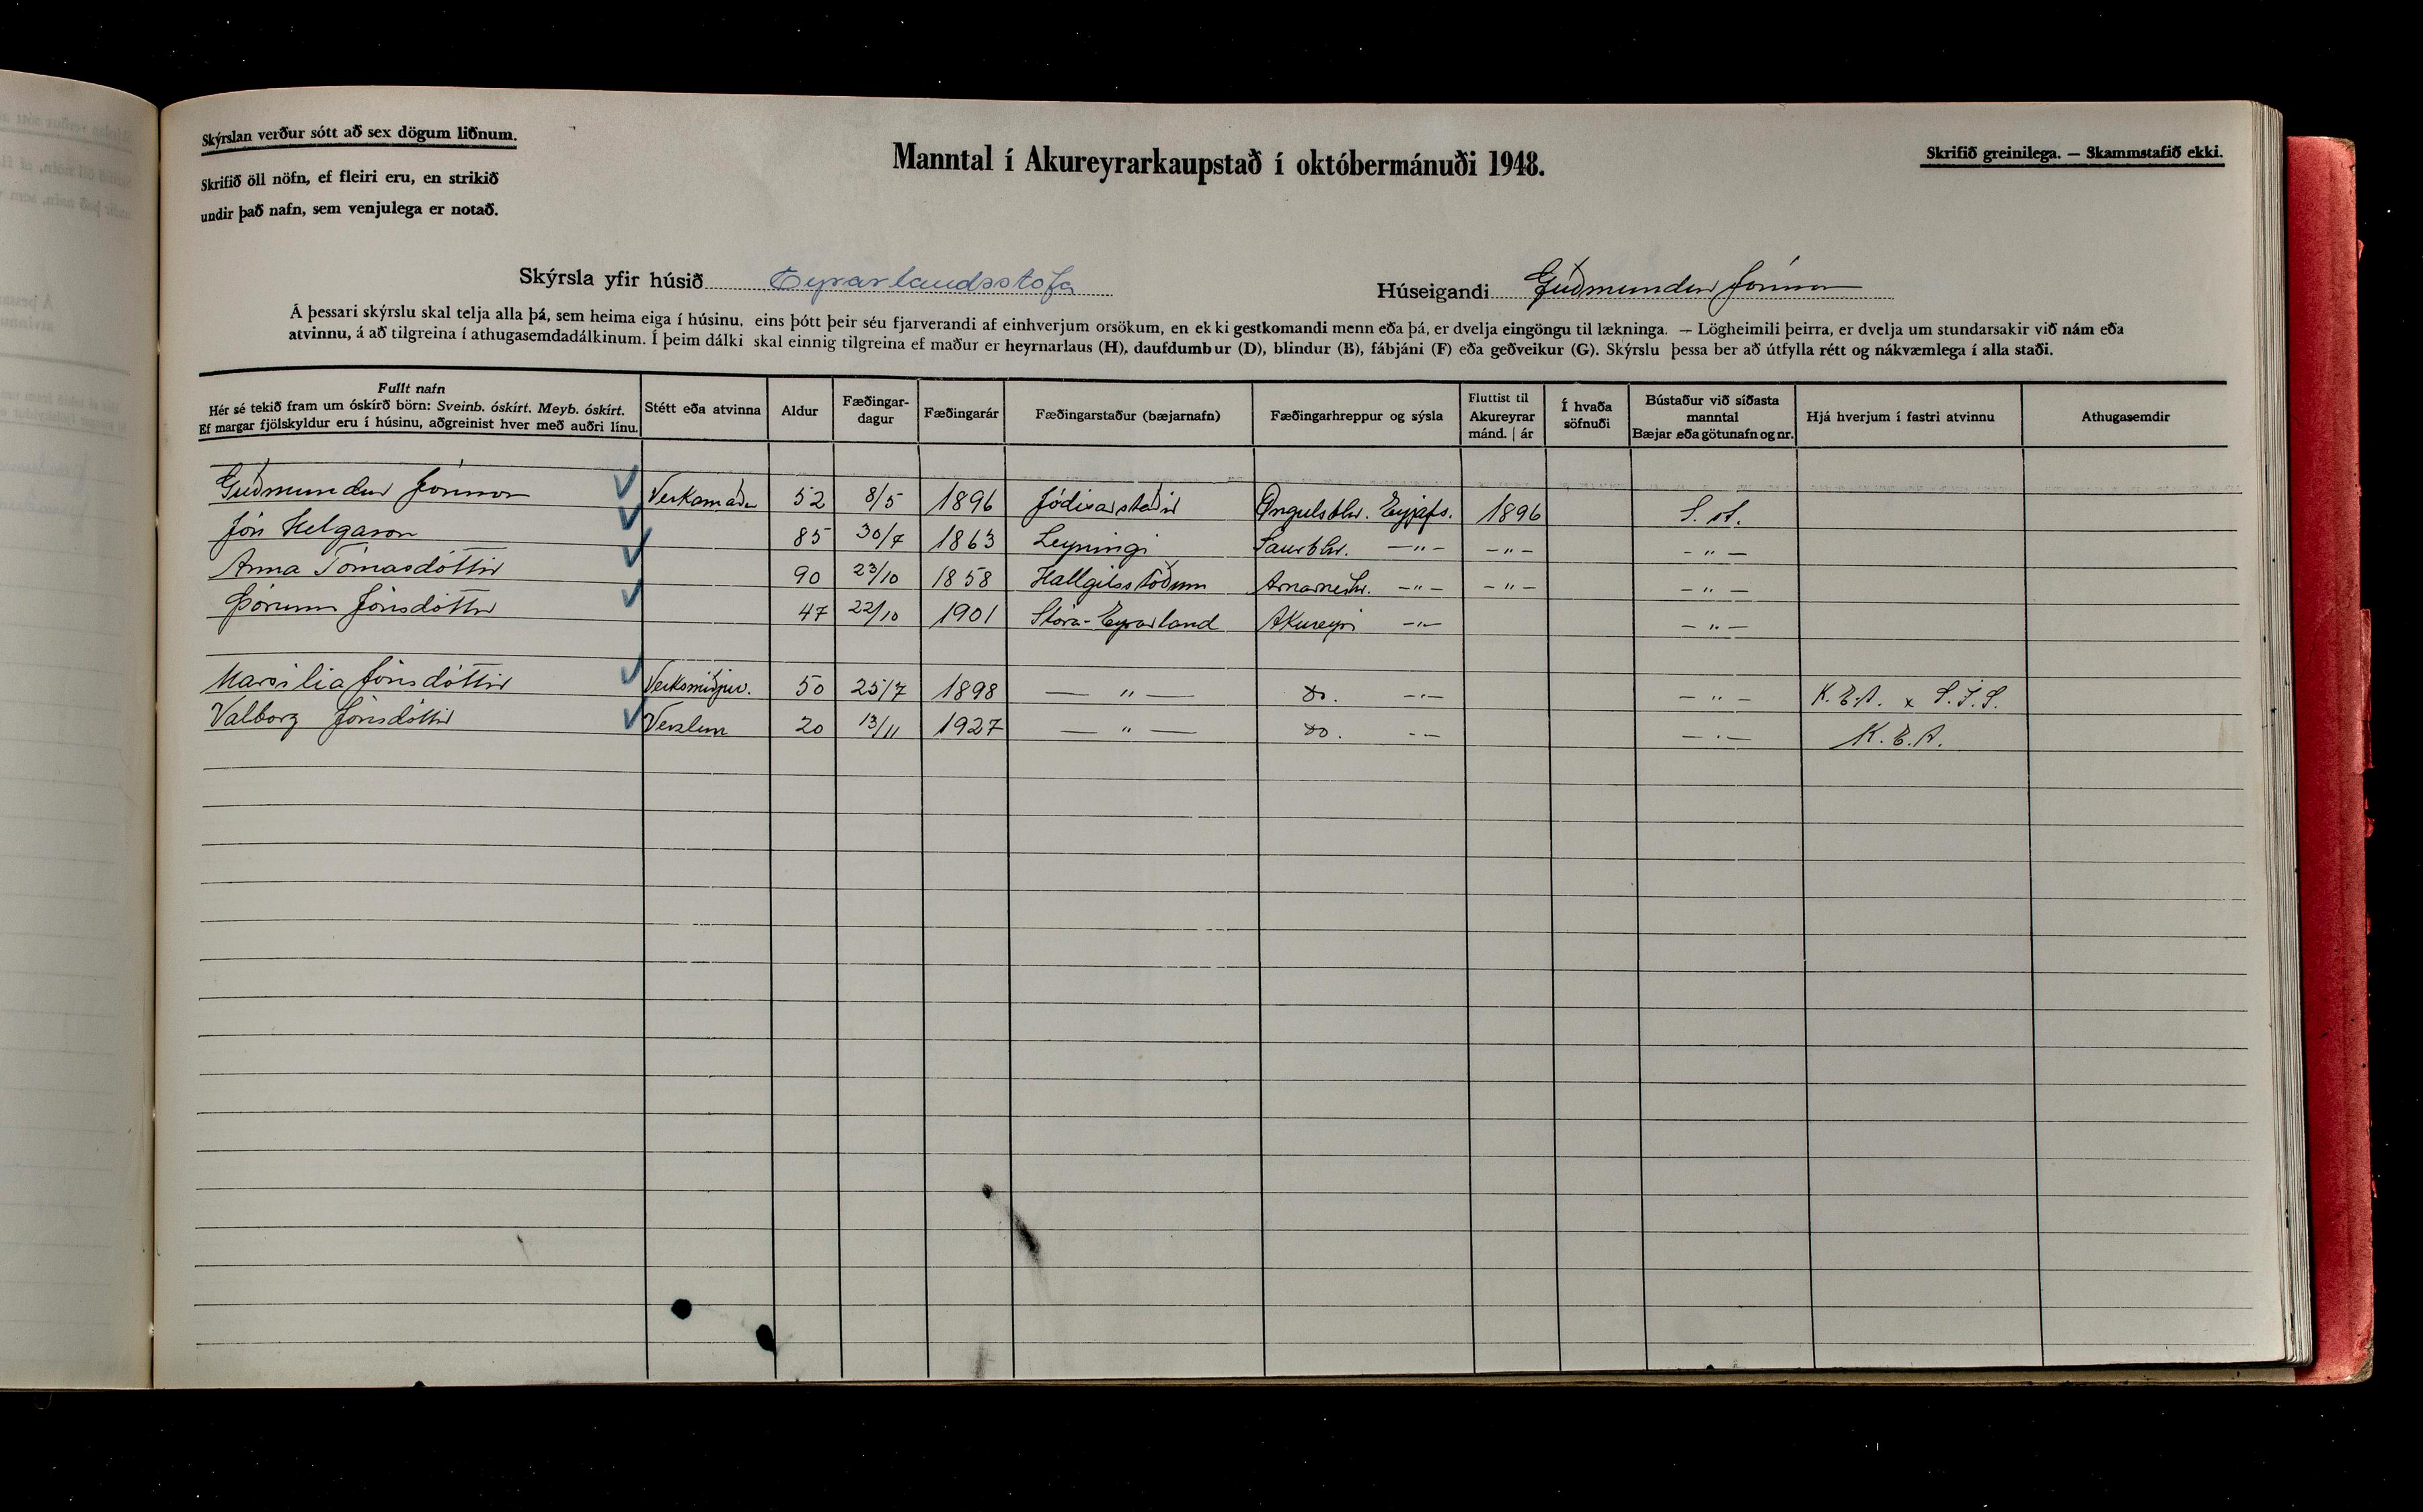 Skýrslan verður sótt að sex dögum liðnum.
Skrifið öll nöfn, ef fleiri eru, en strikið
undir það nafn, sem venjulega er notað.
Manntal í Akureyrarkaupstað í októbermánuði 1948.
Skrifið greinilega. — Skammstafið ekki.
Skýrsla yfir húsið Eyrarlandsstofa
Húseigandi Guðmundur Jónsson
Á þessari skýrslu skal telja alla þá, sem heima eiga í húsinu, eins þótt þeir séu fjarverandi af einhverjum orsökum, en ekki gestkomandi menn eða þá, er dvelja eingöngu til lækninga. — Lögheimili þeirra, er dvelja um stundarsakir við nám eða
atvinnu, á að tilgreina í athugasemdadálkinum. Í þeim dálki skal einnig tilgreina ef maður er heyrnarlaus (H), daufdumbur (D), blindur (B), fábjáni (F) eða geðveikur (G). Skýrslu þessa ber að útfylla rétt og nákvæmlega í alla staði.
Fullt nafn
Hér sé tekið fram um óskírð börn: Sveinb. óskírt. Meyb. óskírt.
Ef margar fjölskyldur eru í húsinu, aðgreinist hver með auðri línu.
Stétt eða atvinna
Aldur
Fæðingar-
dagur
Fæðingarár
Fæðingarstaður (bæjarnafn)
Fæðingarhreppur og sýsla
Fluttist til
Akureyrar
mánd. | ár
Í hvaða
söfnuði
Bústaður við síðasta
manntal
Bæjar eða götunafn og nr.
Hjá hverjum í fastri atvinnu
Athugasemdir
Guðmundur Jónsson Verkamaður 52 8/5 1896 Jódísarstaðir Öngulsblr. Eyjafs. 1896 S. st.
Jón Helgason 85 30/7 1863 Leyningi Saurbhr. —"— —"— —"—
Anna Tómasdóttir 90 23/10 1858 Hallgilsstöðum Arnarneshr. —"— —"— —"—
Þórunn Jónsdóttir 47 22/10 1901 Stóra-Eyrarland Akureyri —"— —"—
Marsilia Jónsdóttir Verksmiðjuv. 50 25/7 1898 —"— do. —"— —"— K.E.A. x S.Í.S.
Valborg Jónsdóttir Verzlun 20 13/11 1927 —"— do. —"— —"— K.E.A.